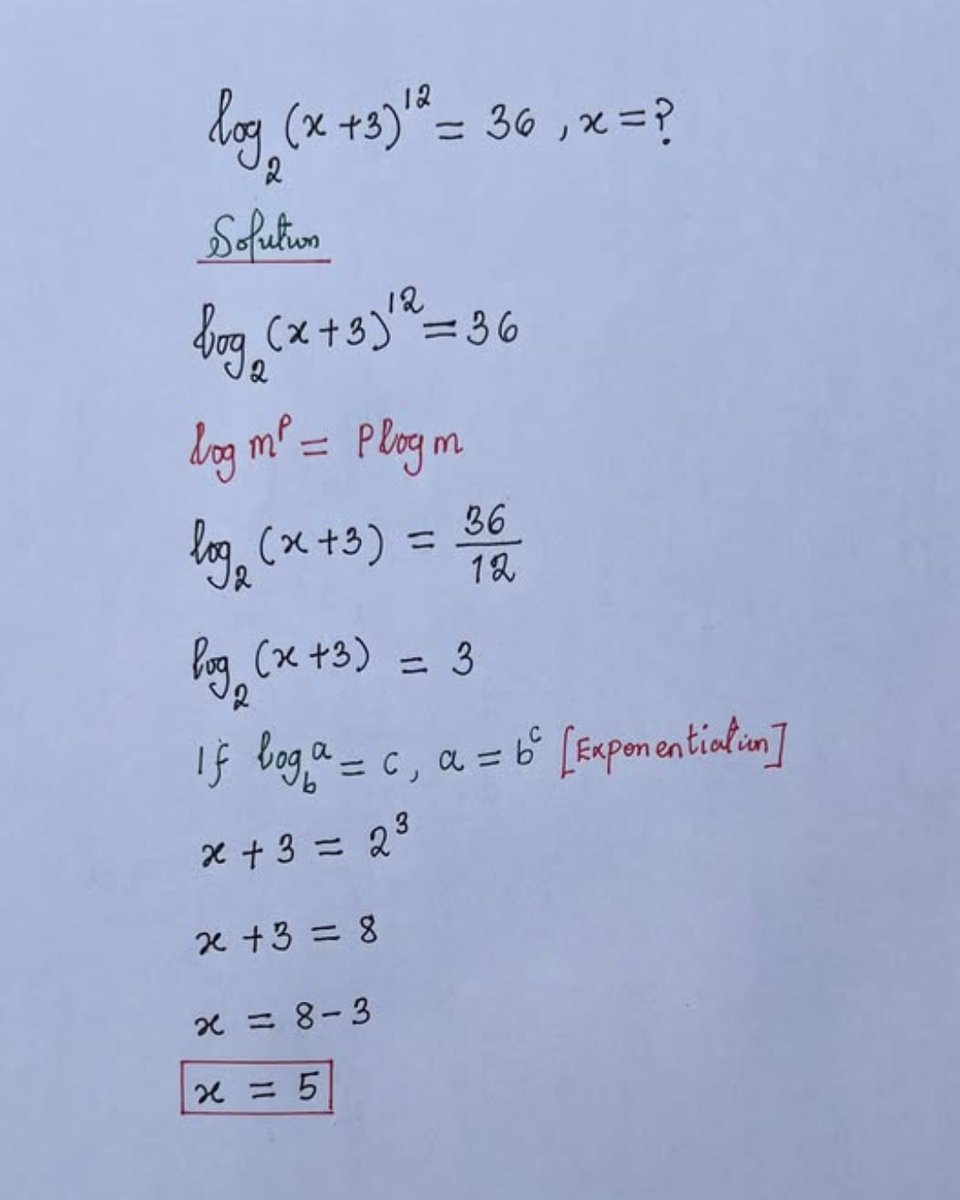 log₂(x+3)¹² = 36, x=?
Solution
log₂(x+3)¹² = 36
log mᵖ = P log m
log₂(x+3) = 36/12
log₂(x+3) = 3
If log_b a = c, a = bᶜ [Exponentiation]
x + 3 = 2³
x + 3 = 8
x = 8 - 3
x = 5